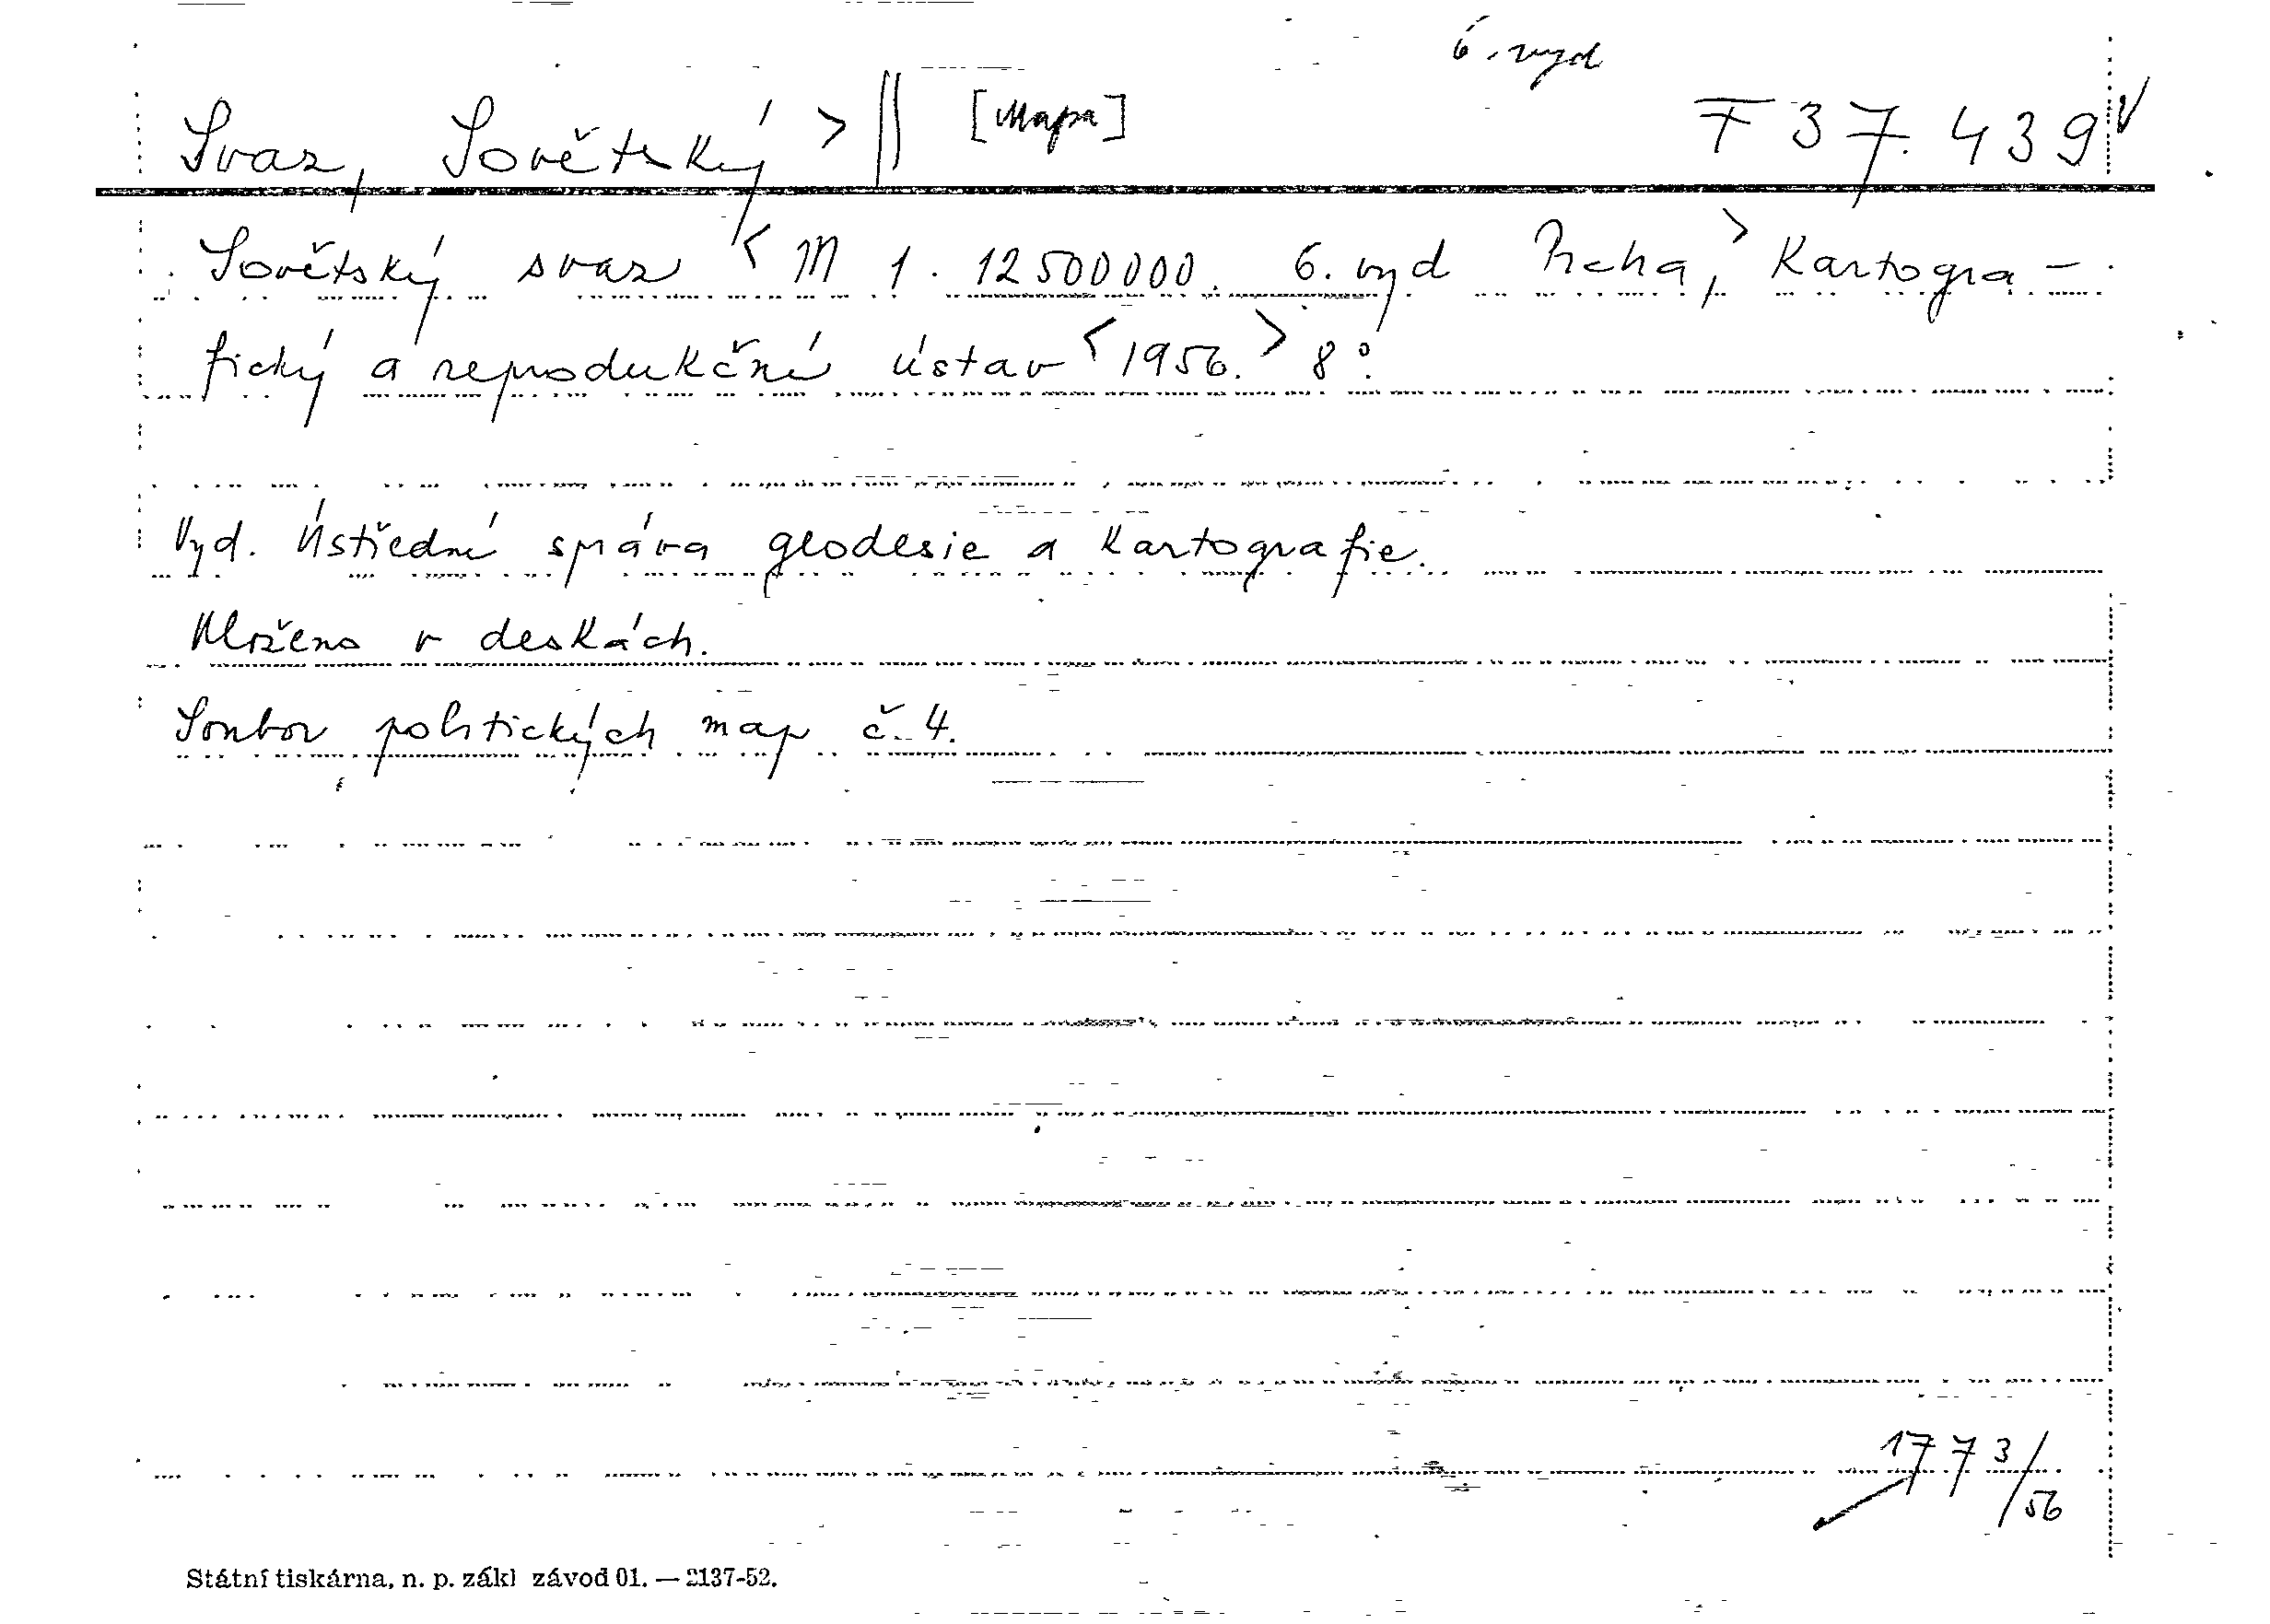 6. vyd
Svaz, Sovětský > || [Mapa] F 37.439
Sovětský svaz < M 1. 12500000. 6. vyd Praha, > Kartogra-
fický a reprodukční ústav < 1956. > 8°.
Vyd. Ústřední správa geodesie a kartografie.
Vloženo v deskách.
Soubor politických map č. 4.
1773/56
Státní tiskárna, n. p. zákl závod 01. — 2137-52.